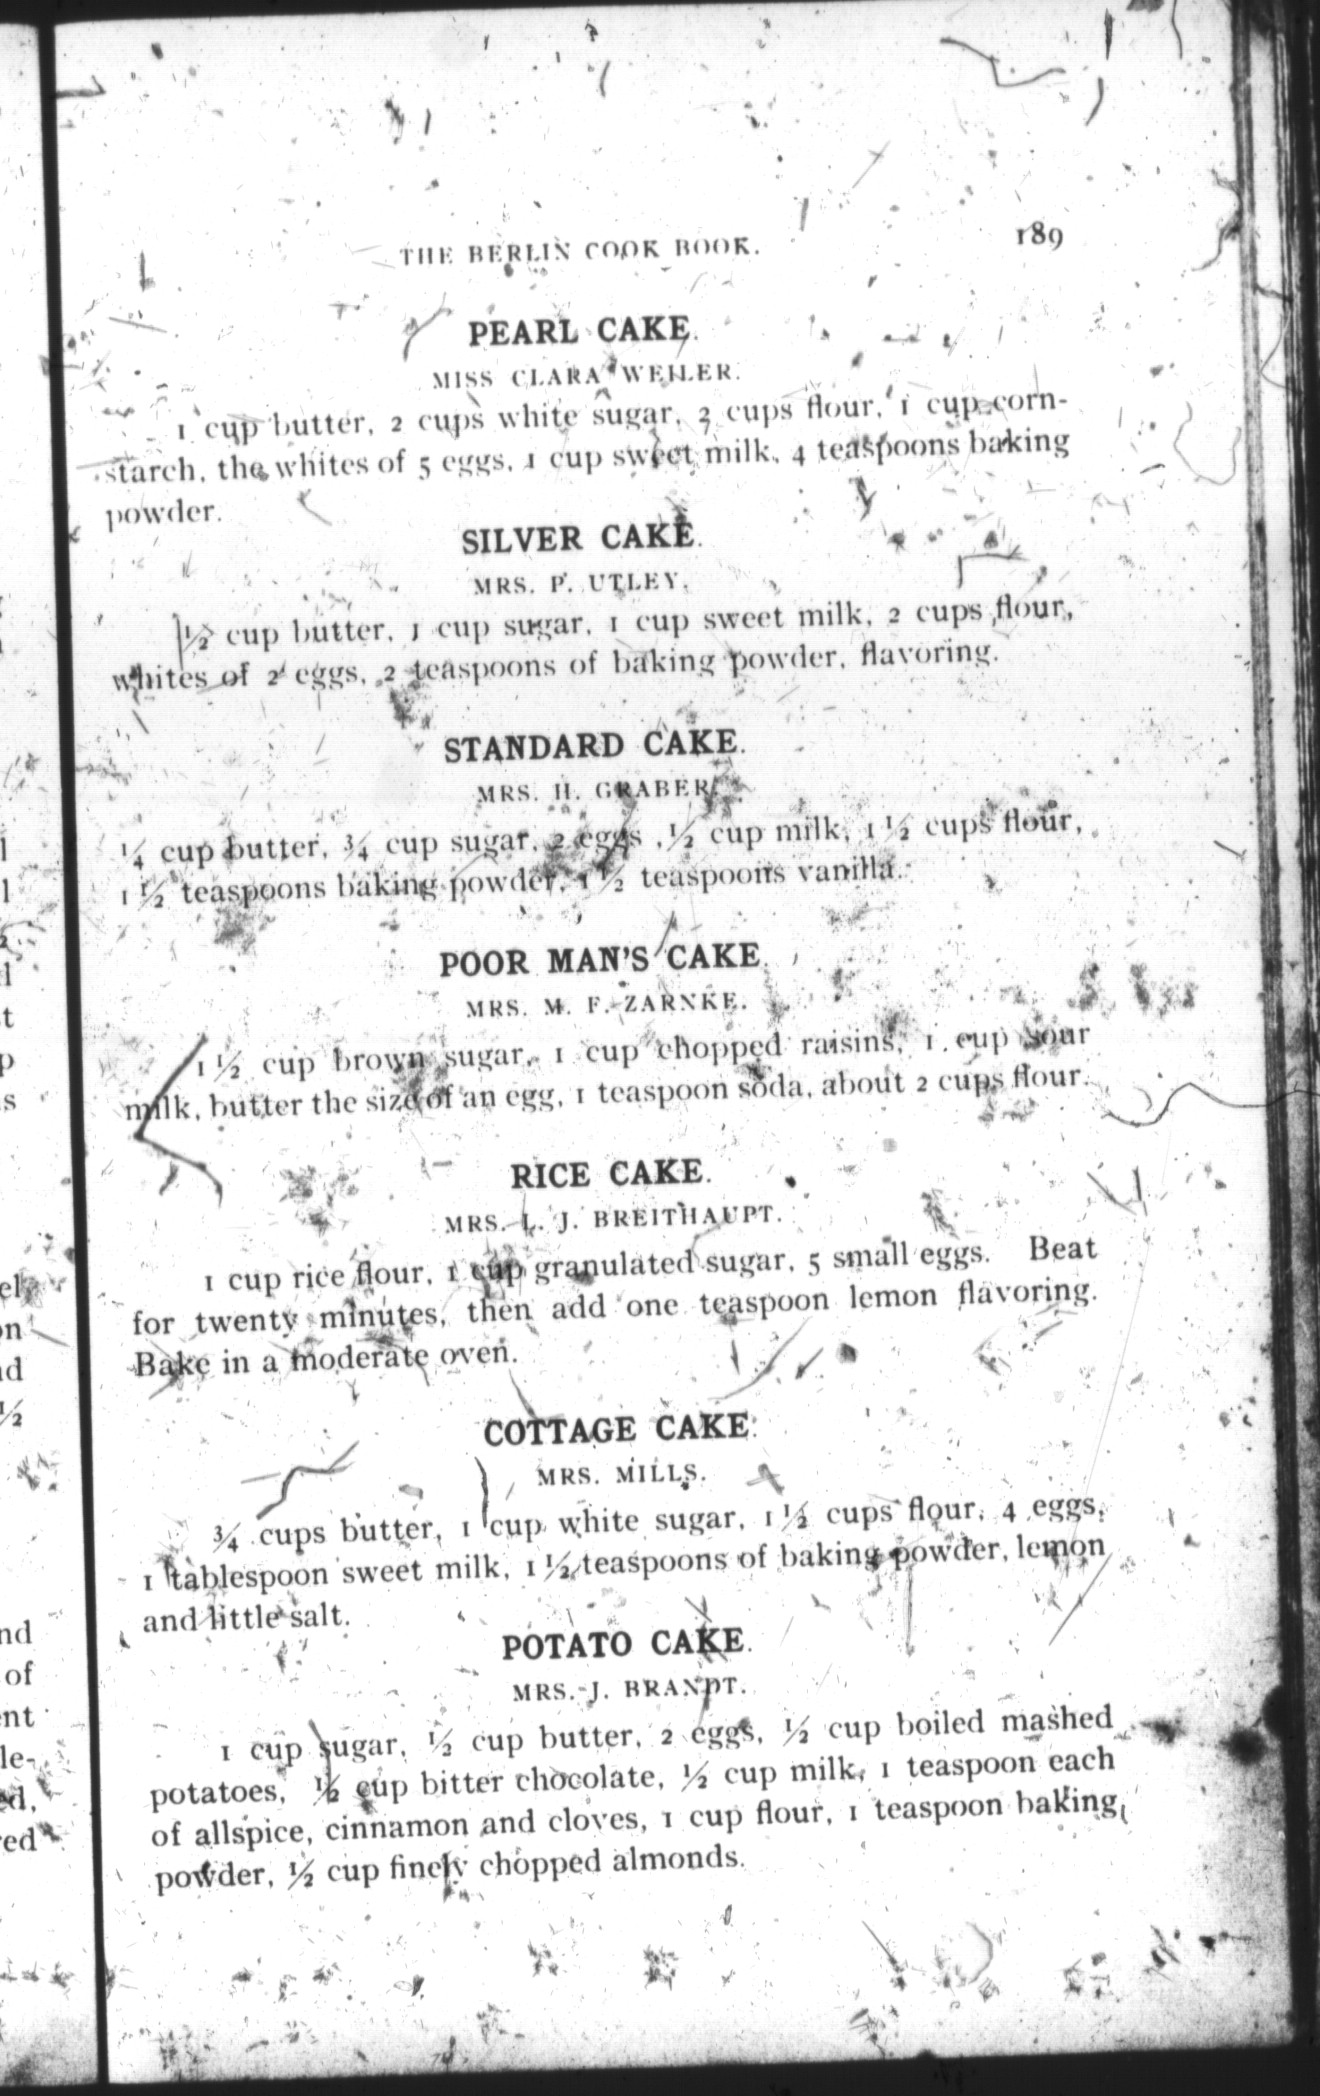 THE BERLIN COOK BOOK. 189
PEARL CAKE.
MISS CLARA WEILER.
1 cup butter, 2 cups white sugar, 2 cups flour, 1 cup corn-
starch, the whites of 5 eggs, 1 cup sweet milk, 4 teaspoons baking
powder.
SILVER CAKE.
MRS. P. UTLEY.
½ cup butter, 1 cup sugar, 1 cup sweet milk, 2 cups flour,
whites of 2 eggs, 2 teaspoons of baking powder, flavoring.
STANDARD CAKE.
MRS. H. GRABER.
¼ cup butter, ¾ cup sugar, 2 eggs ,½ cup milk, 1 ½ cups flour,
1 ½ teaspoons baking powder, 1 ½ teaspoons vanilla.
POOR MAN'S CAKE.
MRS. M. F. ZARNKE.
1 ½ cup brown sugar, 1 cup chopped raisins, 1 cup sour
milk, butter the size of an egg, 1 teaspoon soda, about 2 cups flour.
RICE CAKE.
MRS. L. J. BREITHAUPT.
1 cup rice flour, 1 cup granulated sugar, 5 small eggs. Beat
for twenty minutes, then add one teaspoon lemon flavoring.
Bake in a moderate oven.
COTTAGE CAKE.
MRS. MILLS.
¾ cups butter, 1 cup white sugar, 1 ½ cups flour, 4 eggs,
1 tablespoon sweet milk, 1 ½ teaspoons of baking powder, lemon
and little salt.
POTATO CAKE.
MRS. J. BRANDT.
1 cup sugar, ½ cup butter, 2 eggs, ½ cup boiled mashed
potatoes, ½ cup bitter chocolate, ½ cup milk, 1 teaspoon each
of allspice, cinnamon and cloves, 1 cup flour, 1 teaspoon baking
powder, ½ cup finely chopped almonds.